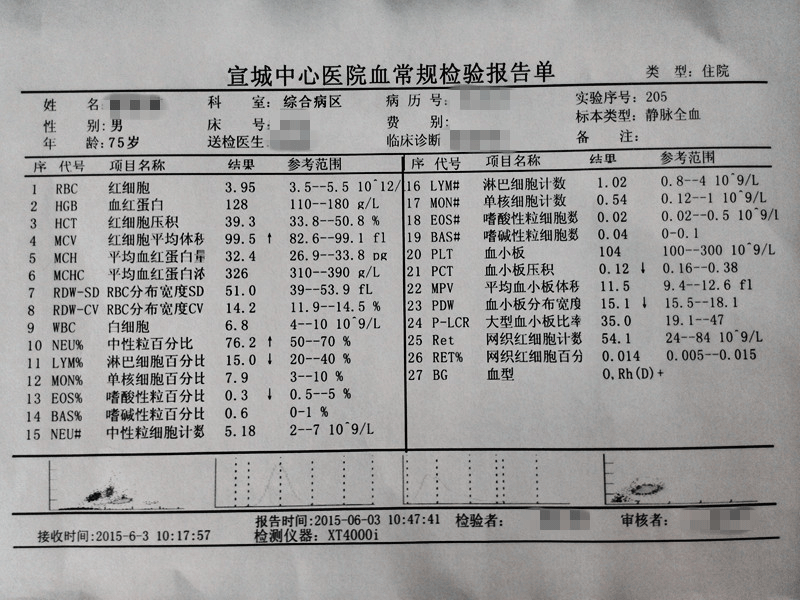 宣城中心医院血常规检验报告单
类 型: 住院
姓 名: 科 室: 综合病区 病 历 号: 实验序号: 205
性 别: 男 床 号: 费 别: 标本类型: 静脉全血
年 龄: 75岁 送检医生: 临床诊断 备 注:
序 代号 项目名称 结果 参考范围
1 RBC 红细胞 3.95 3.5--5.5 10^12/
2 HGB 血红蛋白 128 110--180 g/L
3 HCT 红细胞压积 39.3 33.8--50.8 %
4 MCV 红细胞平均体积 99.5 ↑ 82.6--99.1 fl
5 MCH 平均血红蛋白量 32.4 26.9--33.8 pg
6 MCHC 平均血红蛋白浓 326 310--390 g/L
7 RDW-SD RBC分布宽度SD 51.0 39--53.9 fL
8 RDW-CV RBC分布宽度CV 14.2 11.9--14.5 %
9 WBC 白细胞 6.8 4--10 10^9/L
10 NEU% 中性粒百分比 76.2 ↑ 50--70 %
11 LYM% 淋巴细胞百分比 15.0 ↓ 20--40 %
12 MON% 单核细胞百分比 7.9 3--10 %
13 EOS% 嗜酸性粒百分比 0.3 ↓ 0.5--5 %
14 BAS% 嗜碱性粒百分比 0.6 0-1 %
15 NEU# 中性粒细胞计数 5.18 2--7 10^9/L
序 代号 项目名称 结果 参考范围
16 LYM# 淋巴细胞计数 1.02 0.8--4 10^9/L
17 MON# 单核细胞计数 0.54 0.12--1 10^9/L
18 EOS# 嗜酸性粒细胞数 0.02 0.02--0.5 10^9/L
19 BAS# 嗜碱性粒细胞数 0.04 0-0.1
20 PLT 血小板 104 100--300 10^9/L
21 PCT 血小板压积 0.12 ↓ 0.16--0.38
22 MPV 平均血小板体积 11.5 9.4--12.6 fl
23 PDW 血小板分布宽度 15.1 ↓ 15.5--18.1
24 P-LCR 大型血小板比率 35.0 19.1--47
25 Ret 网织红细胞计数 54.1 24--84 10^9/L
26 RET% 网织红细胞百分 0.014 0.005--0.015
27 BG 血型 O,Rh(D)+
报告时间:2015-06-03 10:47:41 检验者: 审核者:
接收时间:2015-6-3 10:17:57 检测仪器: XT4000i